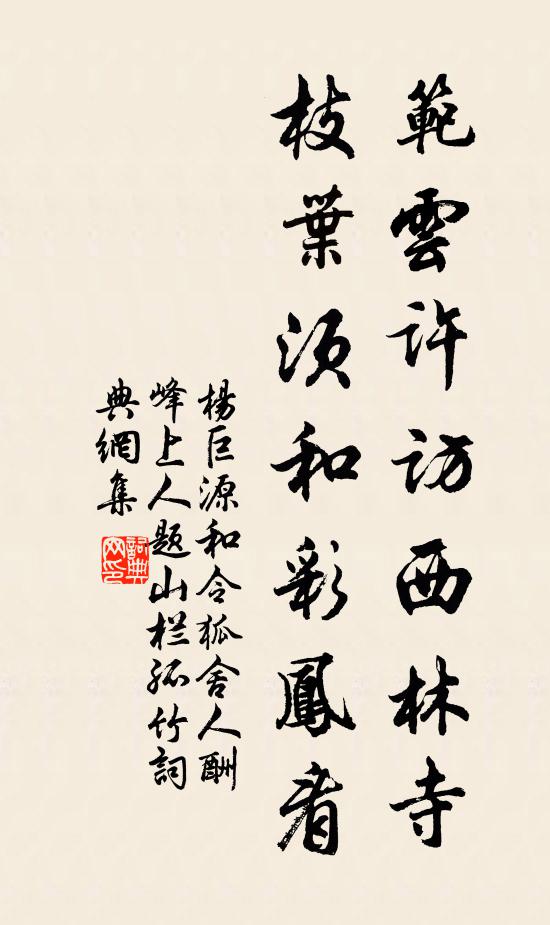 範雲許訪西林寺
枝葉須和彩鳳看
楊巨源和令狐舍人酬
峰上人題山栏孤竹詞
典網集
詞典
网印